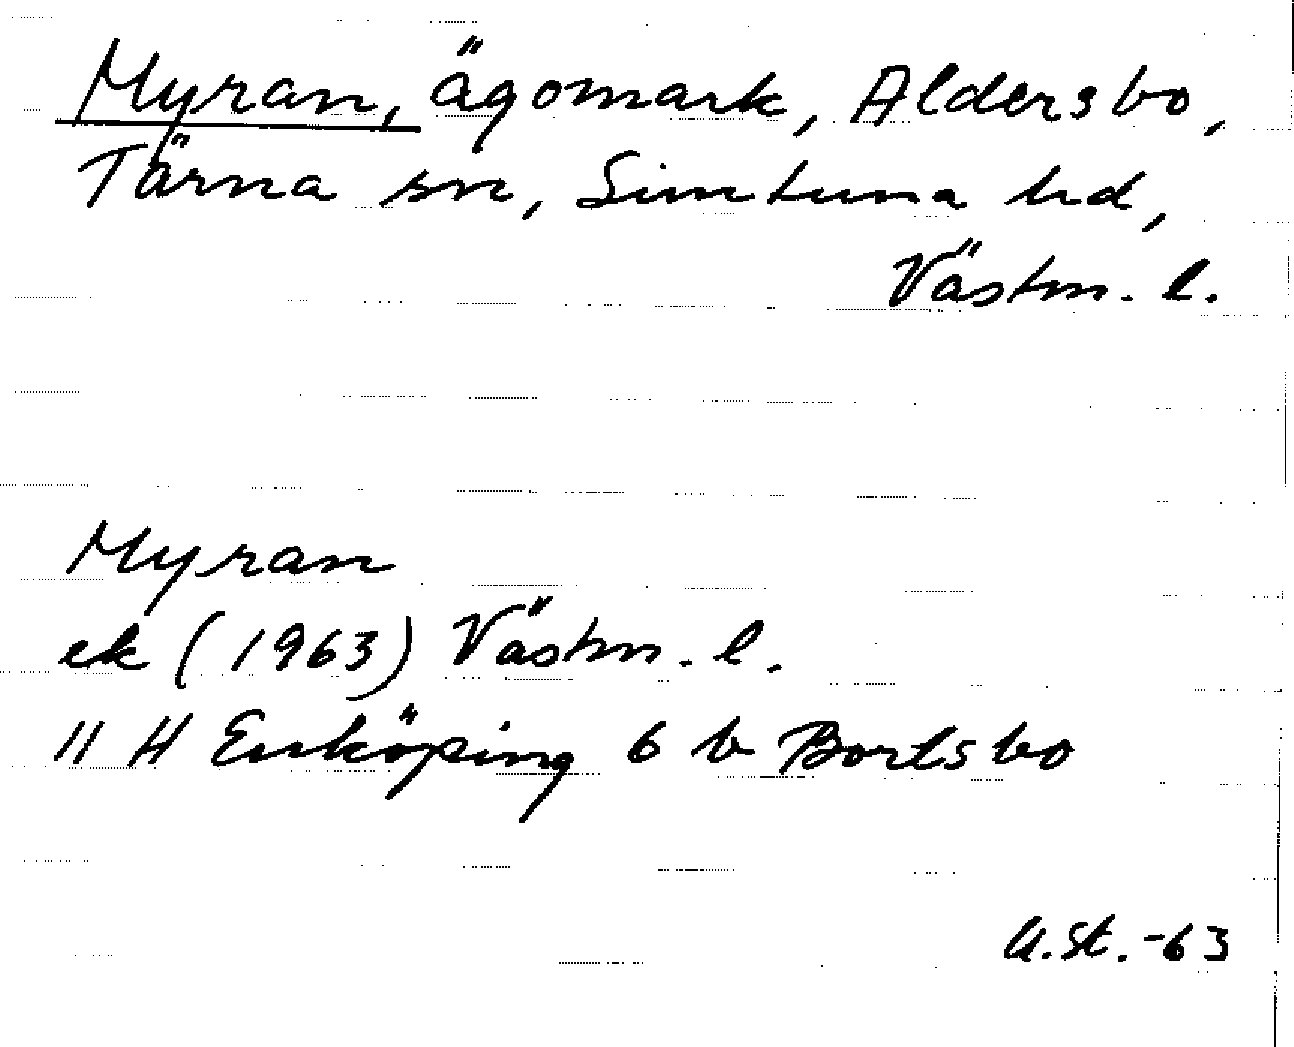 Myran, ägomark, Aldersbo,
Tärna sn, Simtuna hd,
Västm. l.
Myran
ek (1963) Västm. l.
11 H Enköping 6 b Bortsbo
U.St.-63